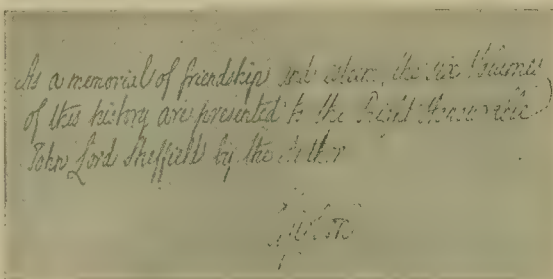 As a memorial of friendship and esteem, the six Volumes
of this history are presented to the Right Honourable
John Lord Sheffield by the Author
Gibbon